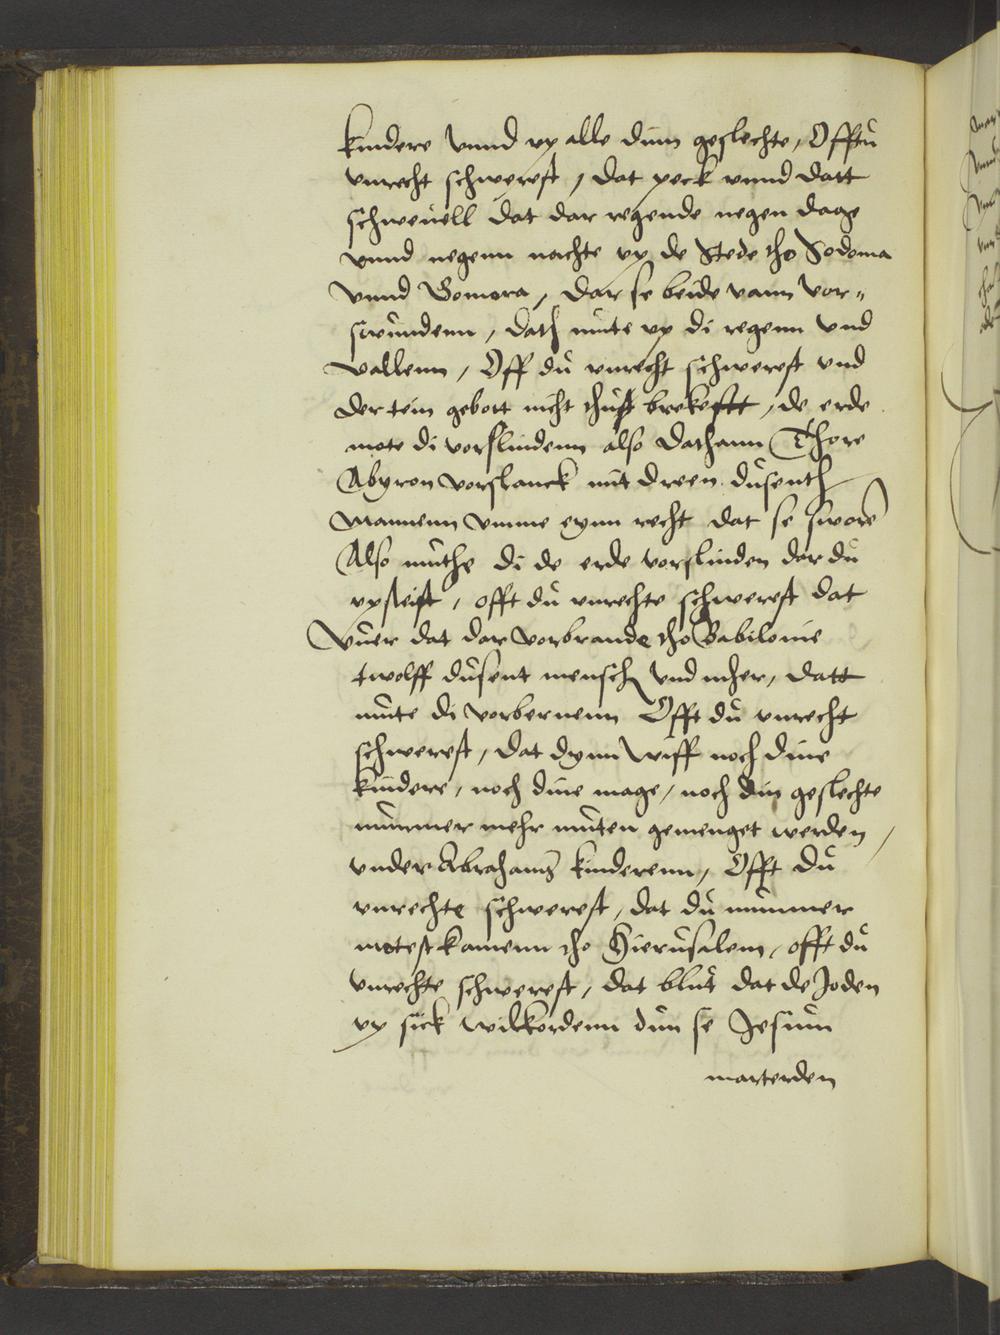 kindere vnnd vp alle dinn geslechte, Offtu
vnrecht schwerest, dat peck vnnd datt
schweuell dat dar regende negen dage
vnnd negenn nachte vp de Stede tho Sodoma
vnnd Gomora, dar se beide vann vor-
swundenn, dath mute vp di regenn vnd
vallenn, Off du vnrecht schwerest vnd
der tein gebott nicht thust brekestt, de erde
mote di vorslindenn also dathann Chore
Abyron vorslanck mit dreen dusenth
Mannenn vmme eynn recht dat se sworen
Also muthe di de erde vorslinden dar du
vpsteist, offt du vnrechte schwerest dat
Vuer dat dar vorbrande tho Babilonie
twolff dusent mensch vnd mher, datt
mute di vorbernenn Offt du vnrecht
schwerest, dat dynn wiff noch dine
kindere, noch dine mage, noch din geslechte
nummer mehr muten gemenget werden,
vnder Abrahams kinderenn, Offt du
vnrechte schwerest, dat du nummer
motest kamenn tho Hierusalem, offt du
vnrechte schwerest, dat blut dat de Joden
vp sick wilkordenn dun se Jesum
marterden